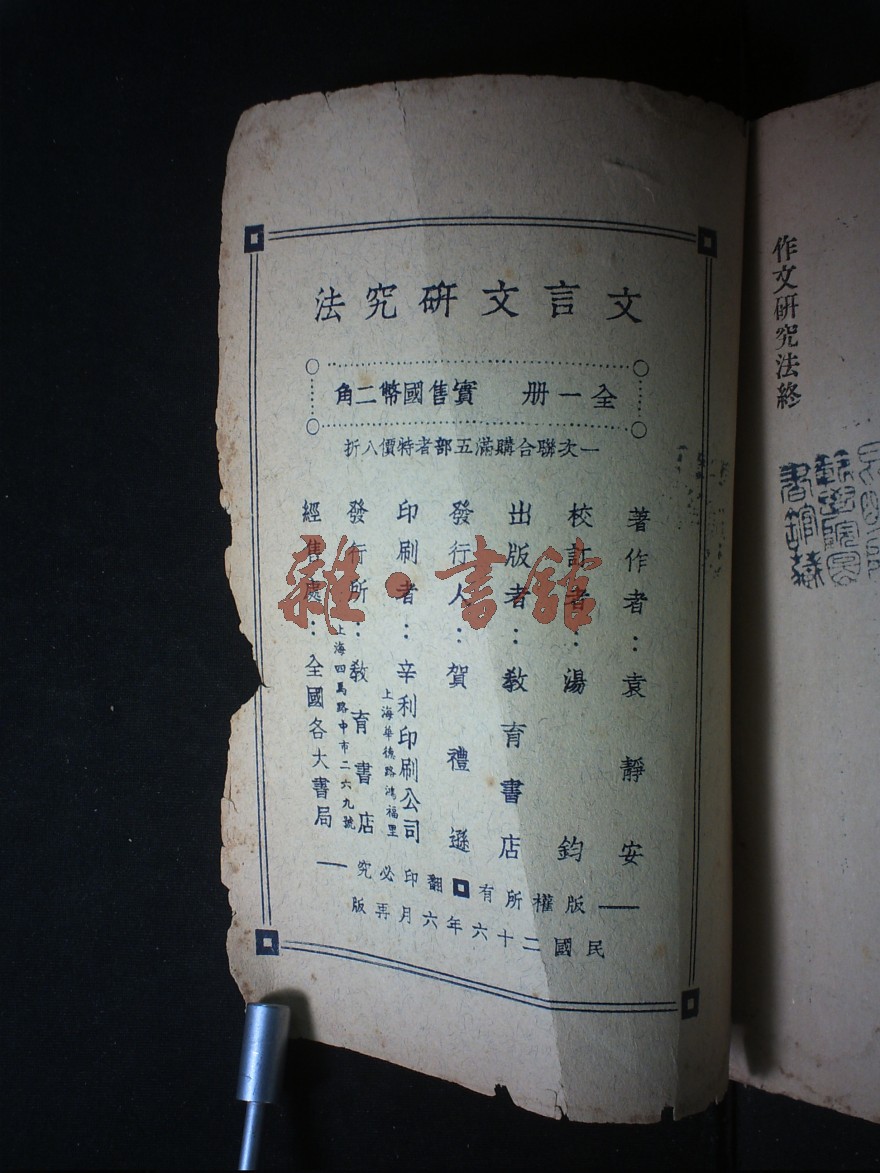 作文研究法終
文言文研究法
全一册 實售國幣二角
一次聯合購滿五部者特價八折
著作者：袁靜安
校訂者：湯鈞
出版者：教育書店
發行人：賀禮遜
印刷者：辛利印刷公司
上海華德路鴻福里
發行所：教育書店
上海四馬路中市二六九號
經售處：全國各大書局
版權所有 翻印必究
民國二十六年六月再版
雜·書館